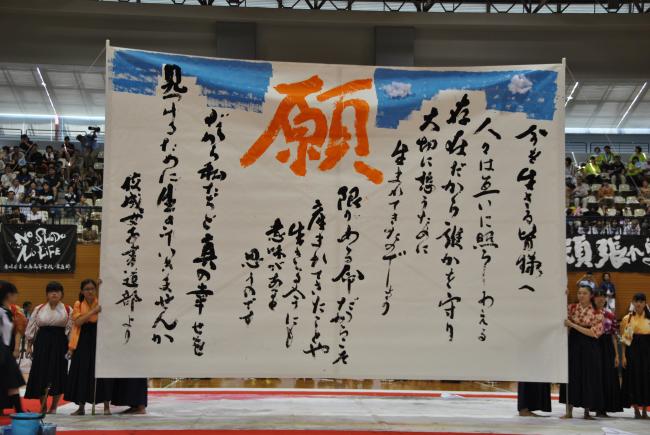 今を生きる皆様へ
人々は互いに照らしあえる
存在だから誰かを守り
大切に想うために
生まれてきたのでしょう
願
限りある命だからこそ
産まれてきたことや
生きている今にも
意味がある
思うのです
だから私たちと真の幸せを
見つけるために生きていきませんか
佼成女子書道部より
NO SHODO
NO LIFE
頑張れ